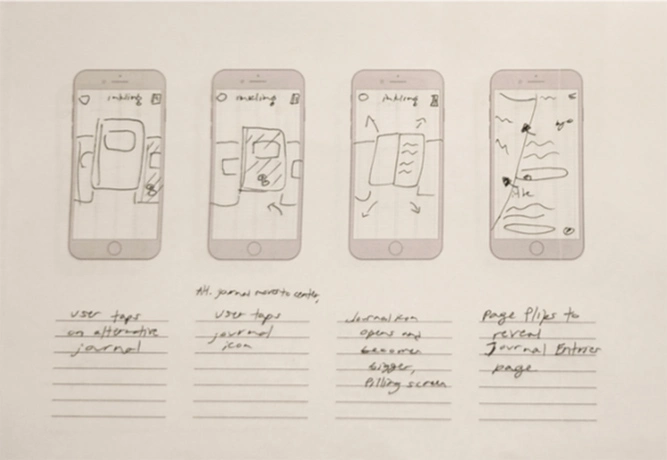 inkling
inkling
inkling
user taps
on alternative
journal
Alt. journal moves to center,
user taps
journal
icon
Journal icon
opens and
becomes
bigger,
filling screen
page flips to
reveal
Journal Entries
page